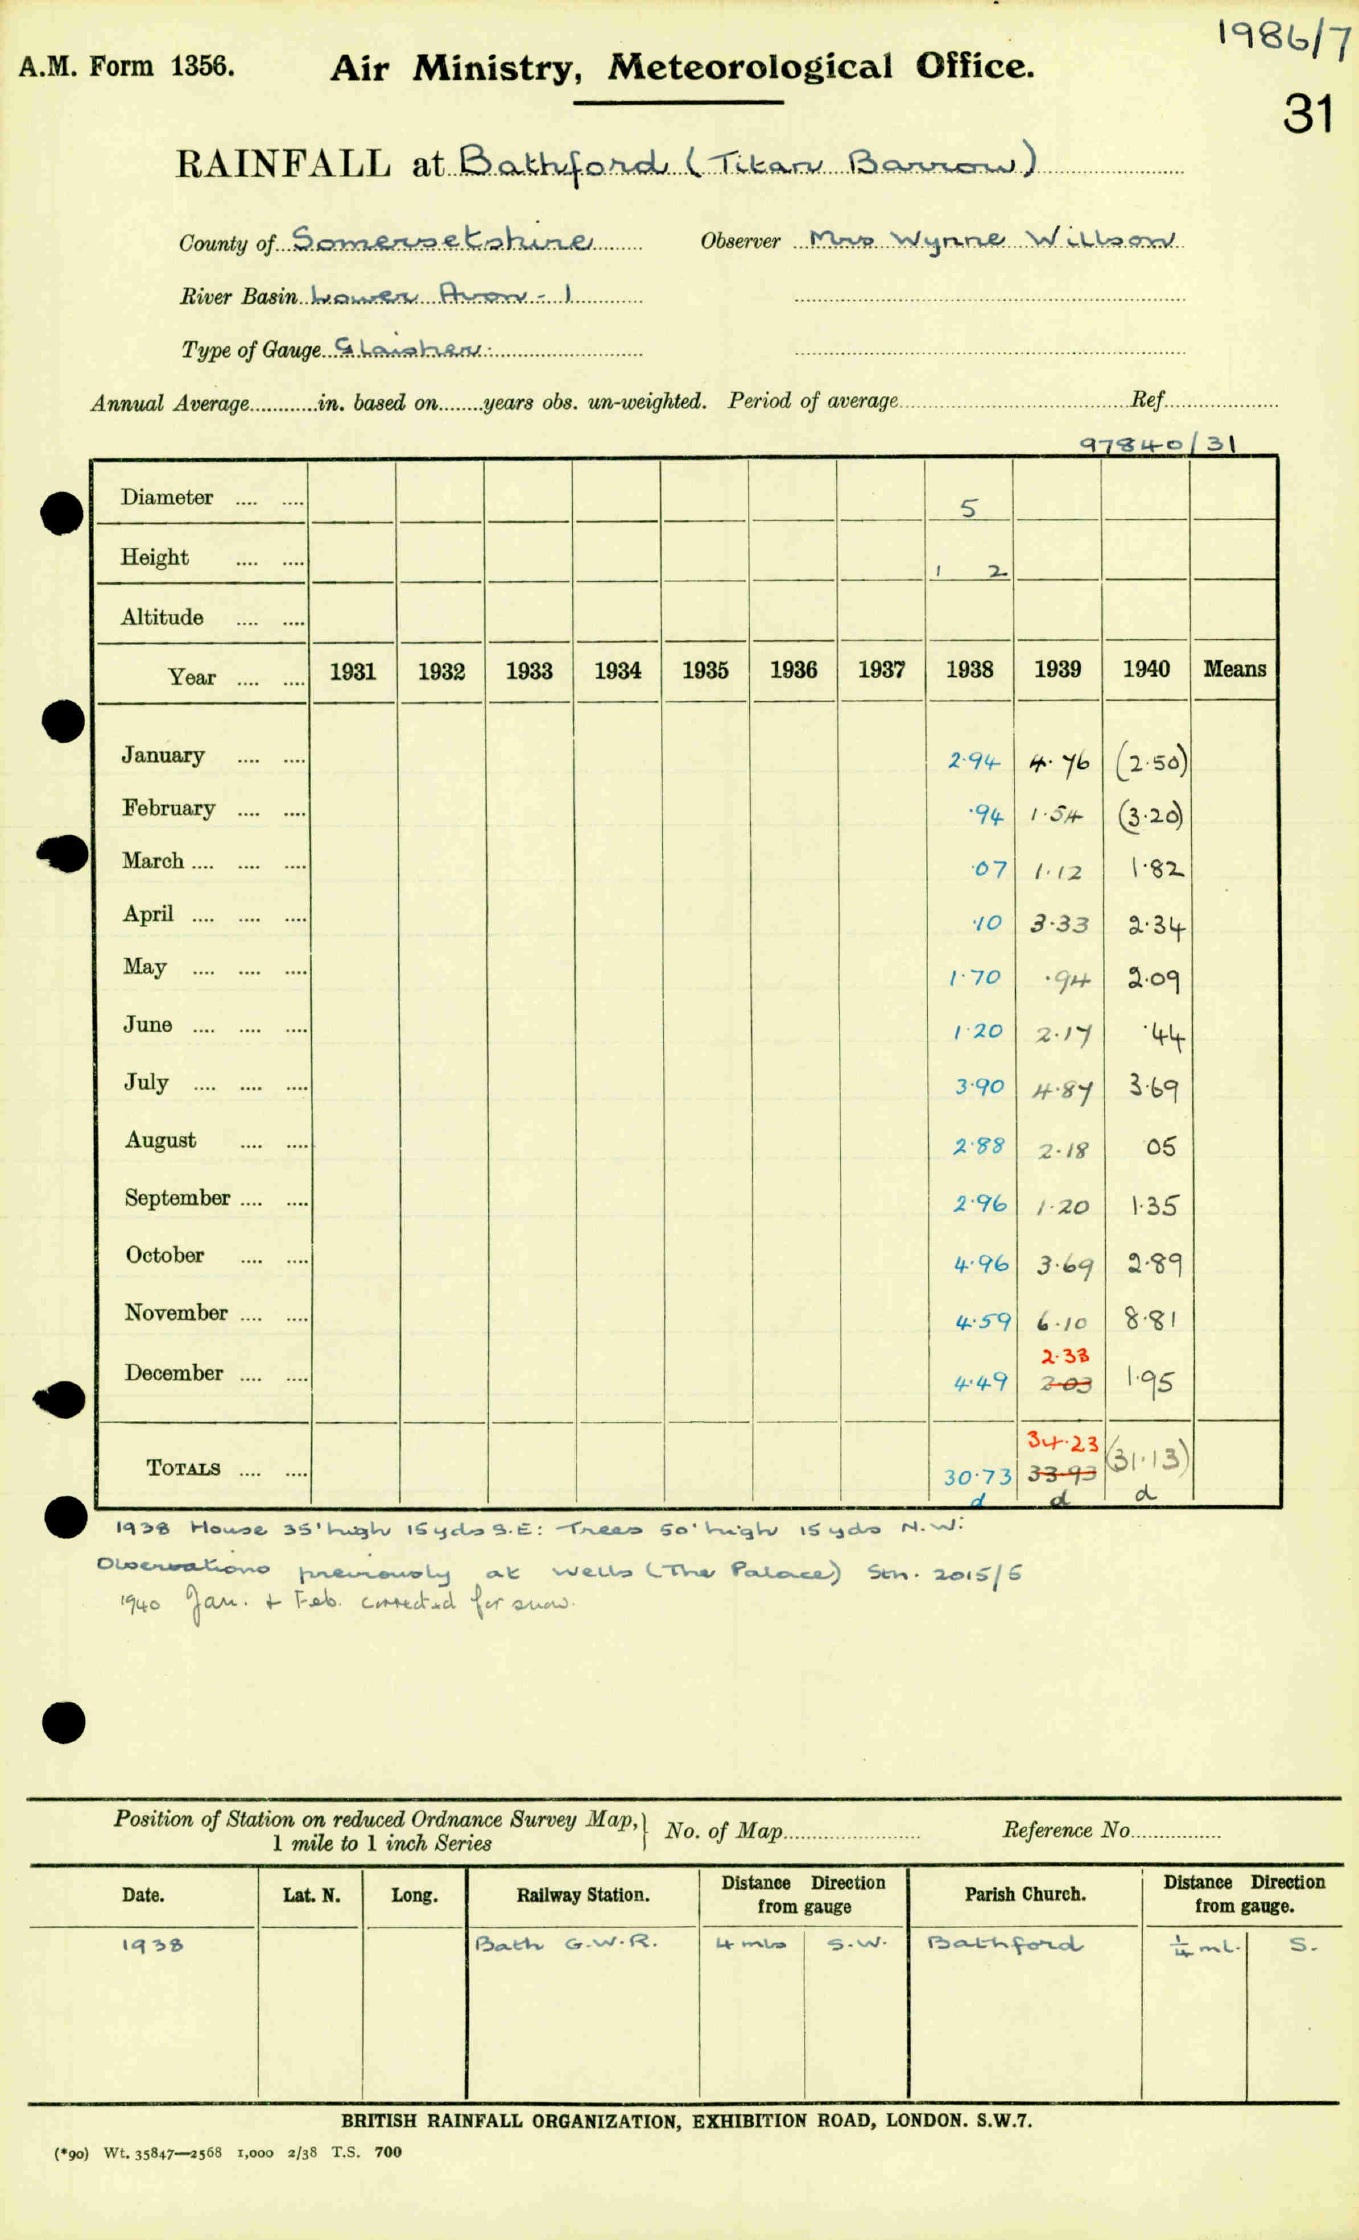 1986/7
A.M. Form 1356. Air Ministry, Meteorological Office.
31
RAINFALL at Bathford (Titan Barrow)
County of Somersetshire Observer Mrs Wynne Willson
River Basin Lower Avon - 1
Type of Gauge Glaisher.
Annual Average............in. based on........years obs. un-weighted. Period of average........ Ref........
97840/31
Diameter .... .... 5
Height .... .... 1 2
Altitude .... ....
Year .... .... 1931 1932 1933 1934 1935 1936 1937 1938 1939 1940 Means
January .... .... 2.94 4.76 (2.50)
February .... .... .94 1.54 (3.20)
March .... .... .... .07 1.12 1.82
April .... .... .... .10 3.33 2.34
May .... .... .... 1.70 .94 2.09
June .... .... .... 1.20 2.17 .44
July .... .... .... 3.90 4.87 3.69
August .... .... 2.88 2.18 05
September .... .... 2.96 1.20 1.35
October .... .... 4.96 3.69 2.89
November .... .... 4.59 6.10 8.81
2.33
December .... .... 4.49 2.03 1.95
34.23
TOTALS .... .... 30.73 33.93 (31.13)
d d d
1938 House 35' high 15 yds S.E: Trees 50' high 15 yds N.W:
Observations previously at Wells (The Palace) Stn. 2015/5
1940 Jan. + Feb. corrected for snow.
Position of Station on reduced Ordnance Survey Map,} No. of Map........ Reference No........
1 mile to 1 inch Series
Date. Lat. N. Long. Railway Station. Distance Direction from gauge Parish Church. Distance Direction from gauge.
1938 Bath G.W.R. 4 mls S.W. Bathford ¼ ml. S.
BRITISH RAINFALL ORGANIZATION, EXHIBITION ROAD, LONDON. S.W.7.
(*90) Wt. 35847—2568 1,000 2/38 T.S. 700